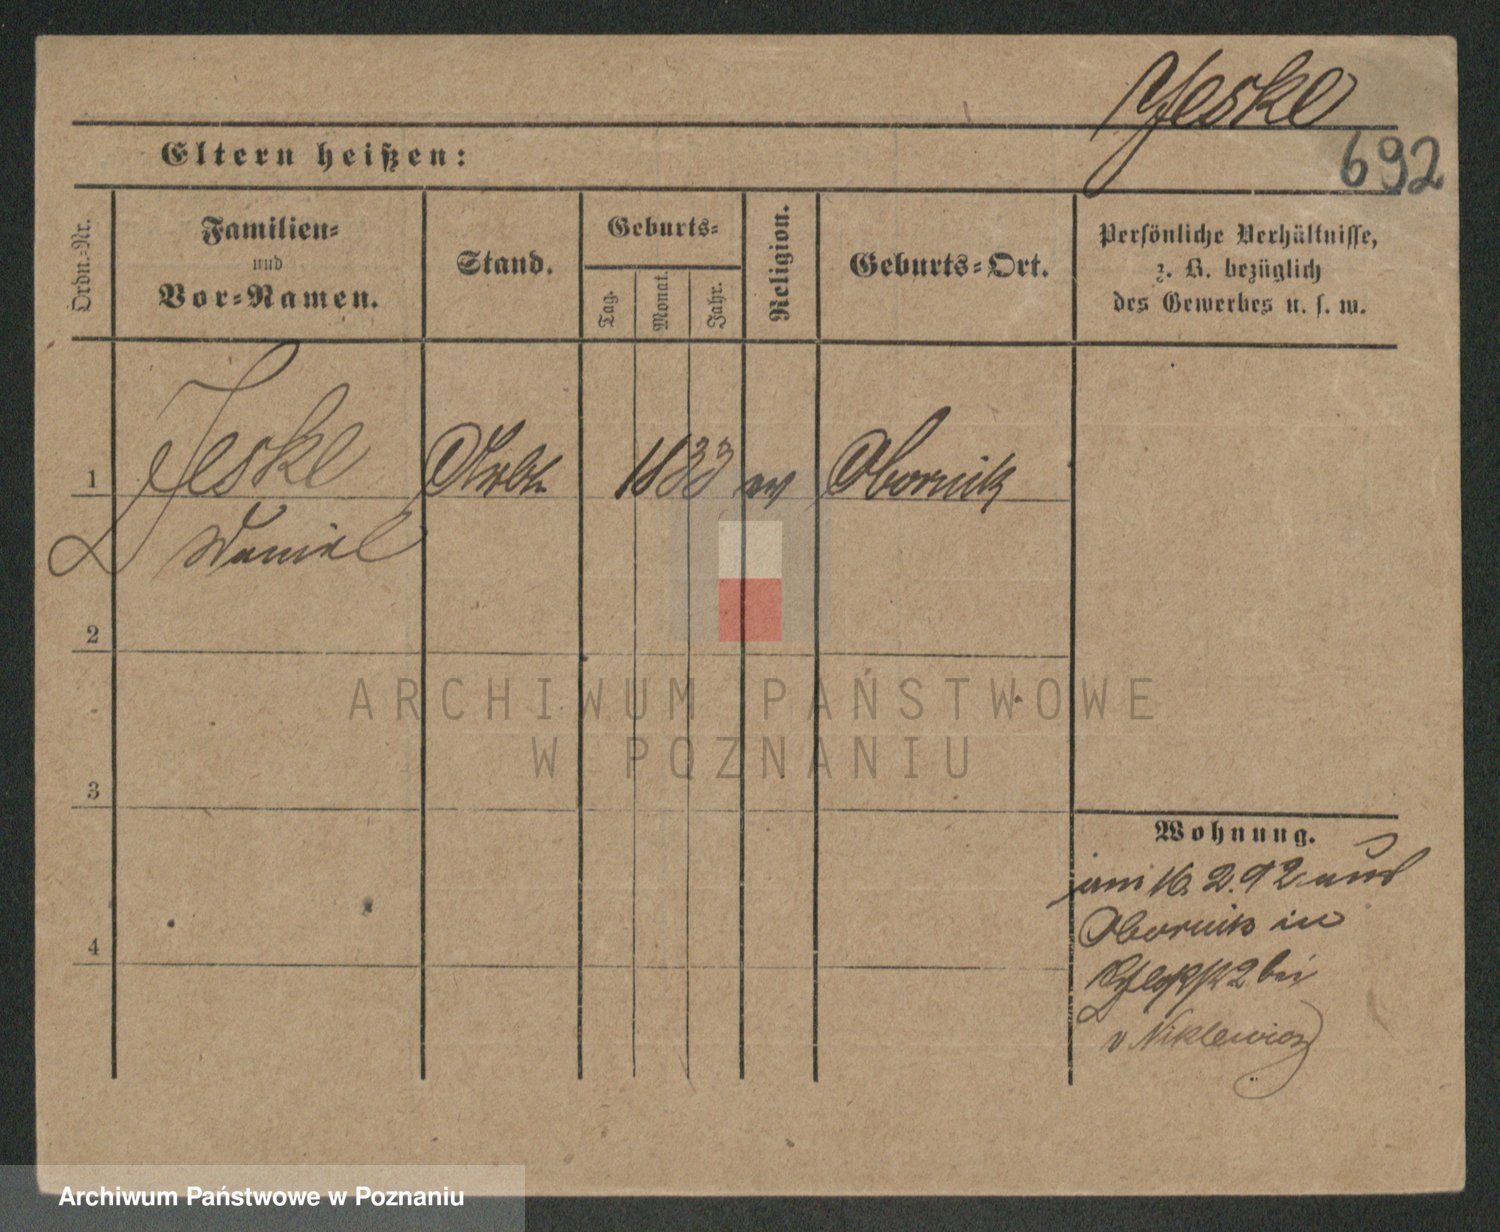 Jeske
692
Eltern heißen:
Ordn.-Nr.
Familien-
und
Vor-Namen.
Stand.
Geburts-
Tag.
Monat.
Jahr.
Religion.
Geburts-Ort.
Persönliche Verhältnisse,
z. B. bezüglich
des Gewerbes u. s. w.
1
Jeske
Arbtr
1833
ev
Obornik
Daniel
2
3
4
Wohnung.
am 16. 2. 92 aus
Obornik in
2 bei
v Niklewicz
ARCHIWUM PAŃSTWOWE
W POZNANIU
Archiwum Państwowe w Poznaniu